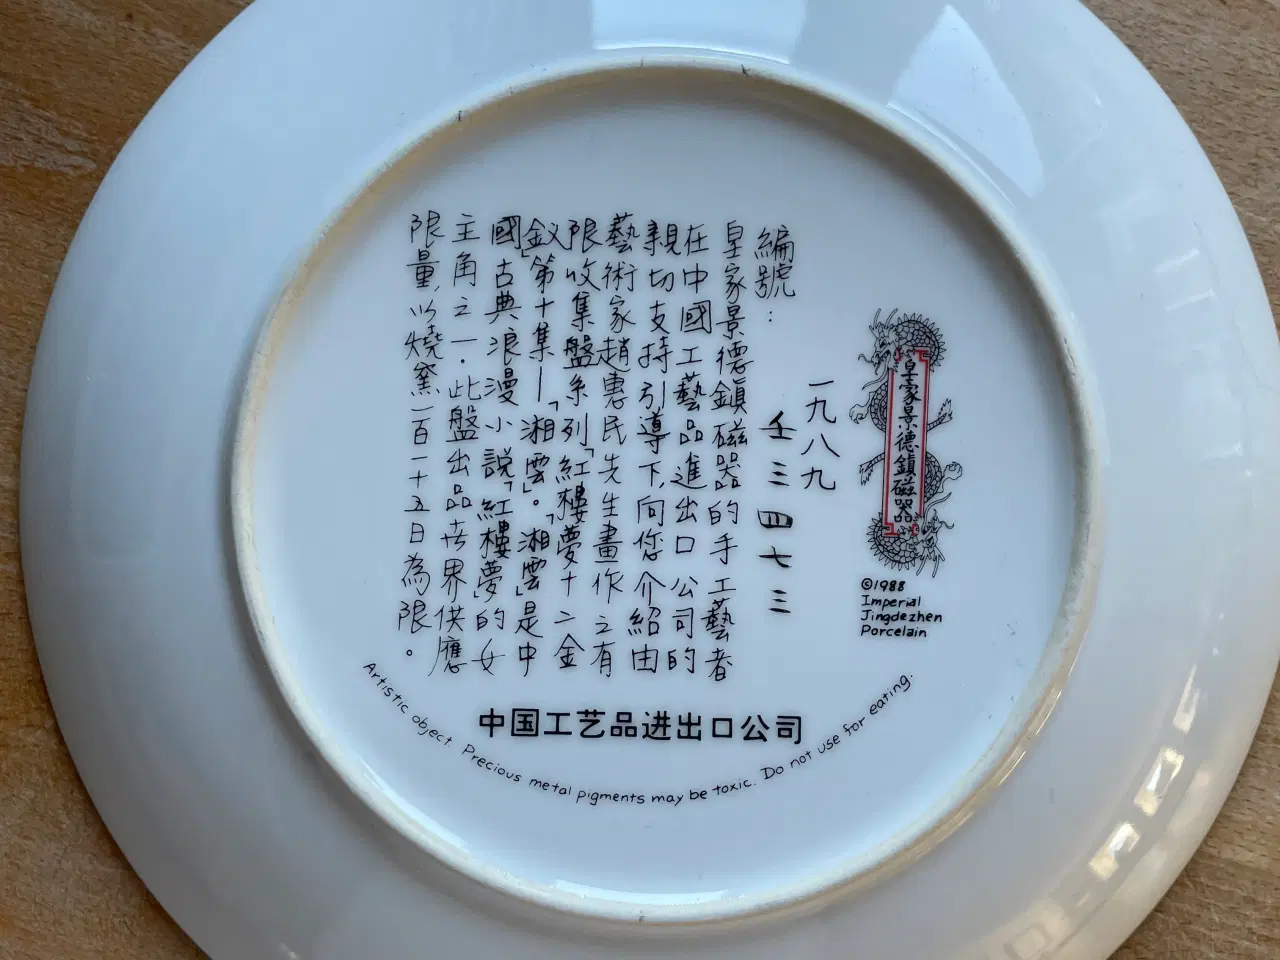 皇家景德鎮磁器
©1988
Imperial
Jingdezhen
Porcelain
一九八九
編號：
壬三四七三
皇家景德鎮磁器的手工藝者
在中國工藝品進出口公司的
親切支持引導下，向您介紹由
藝術家趙惠民先生畫作之有
限收集盤系列「紅樓夢十二金
釵」第十集—「湘雲」。「湘雲」是中
國古典浪漫小説「紅樓夢」的女
主角之一．此盤出品世界供應
限量，以燒窯一百一十五日為限。
中国工艺品进出口公司
Artistic object. Precious metal pigments may be toxic. Do not use for eating.